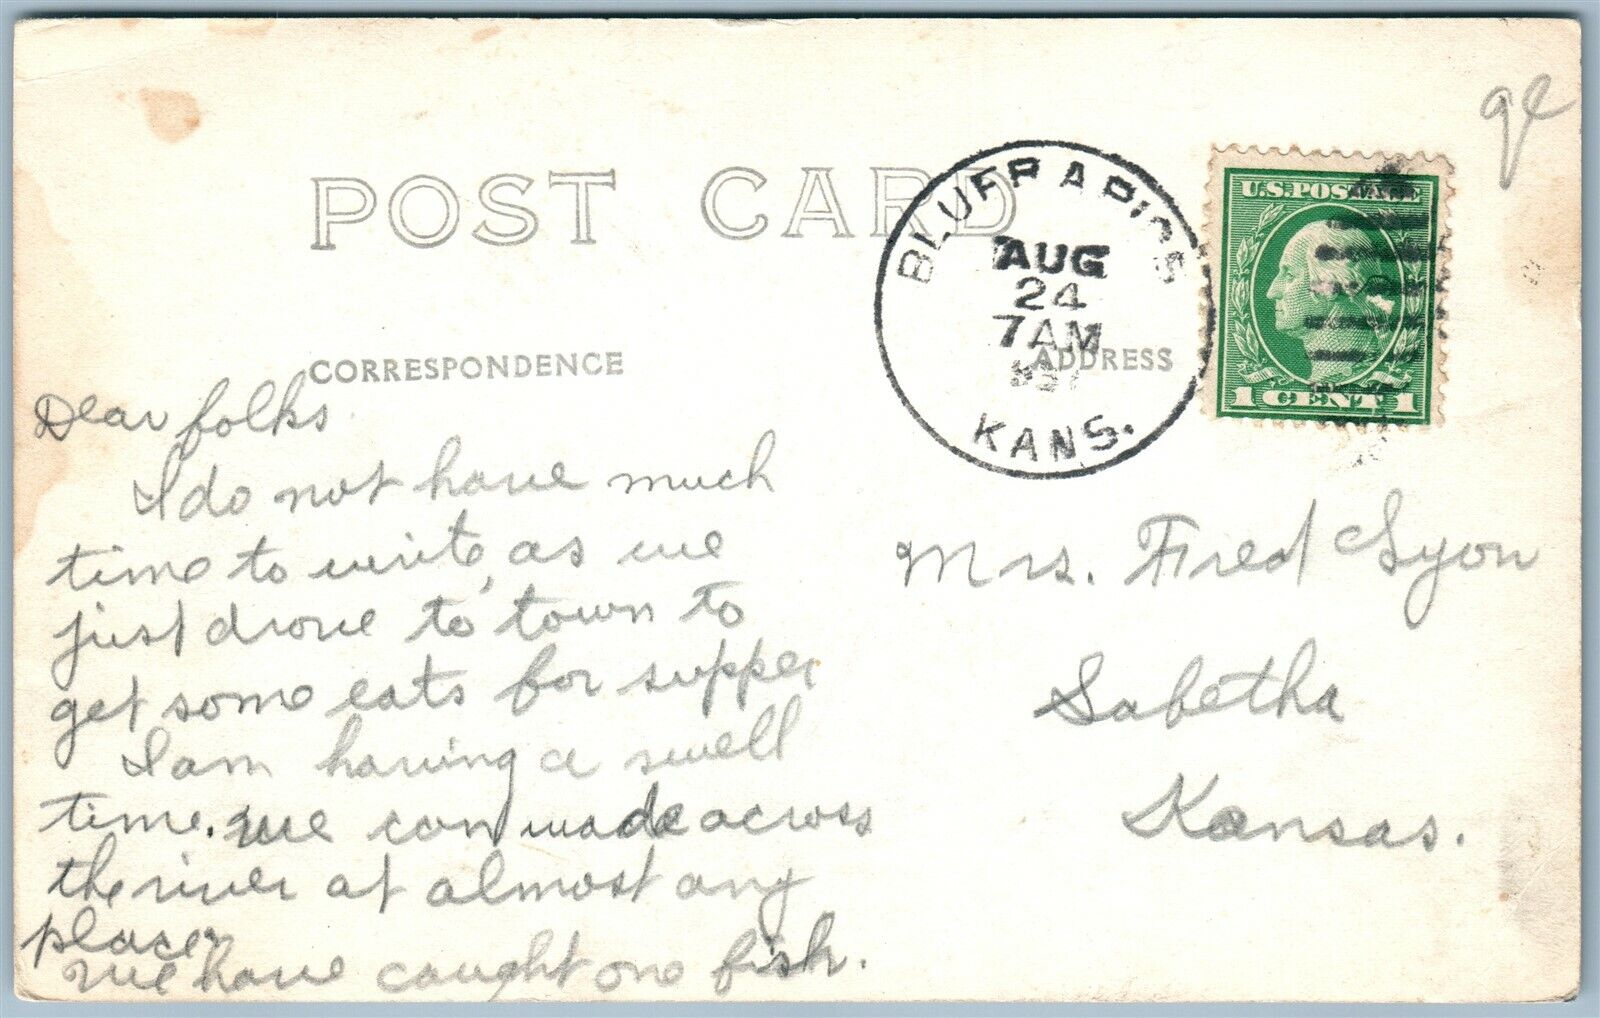 qe
POST CARD
BLUFF RAPIDS
AUG
24
7 AM
KANS.
U.S. POSTAGE
1 CENT 1
CORRESPONDENCE
ADDRESS
Dear folks
I do not have much
time to write, as we
just drove to town to
get some eats for supper
I am having a swell
time. We can wade across
the river at almost any
place.
We have caught one fish.
Mrs. Fred Lyon
Sabetha
Kansas.